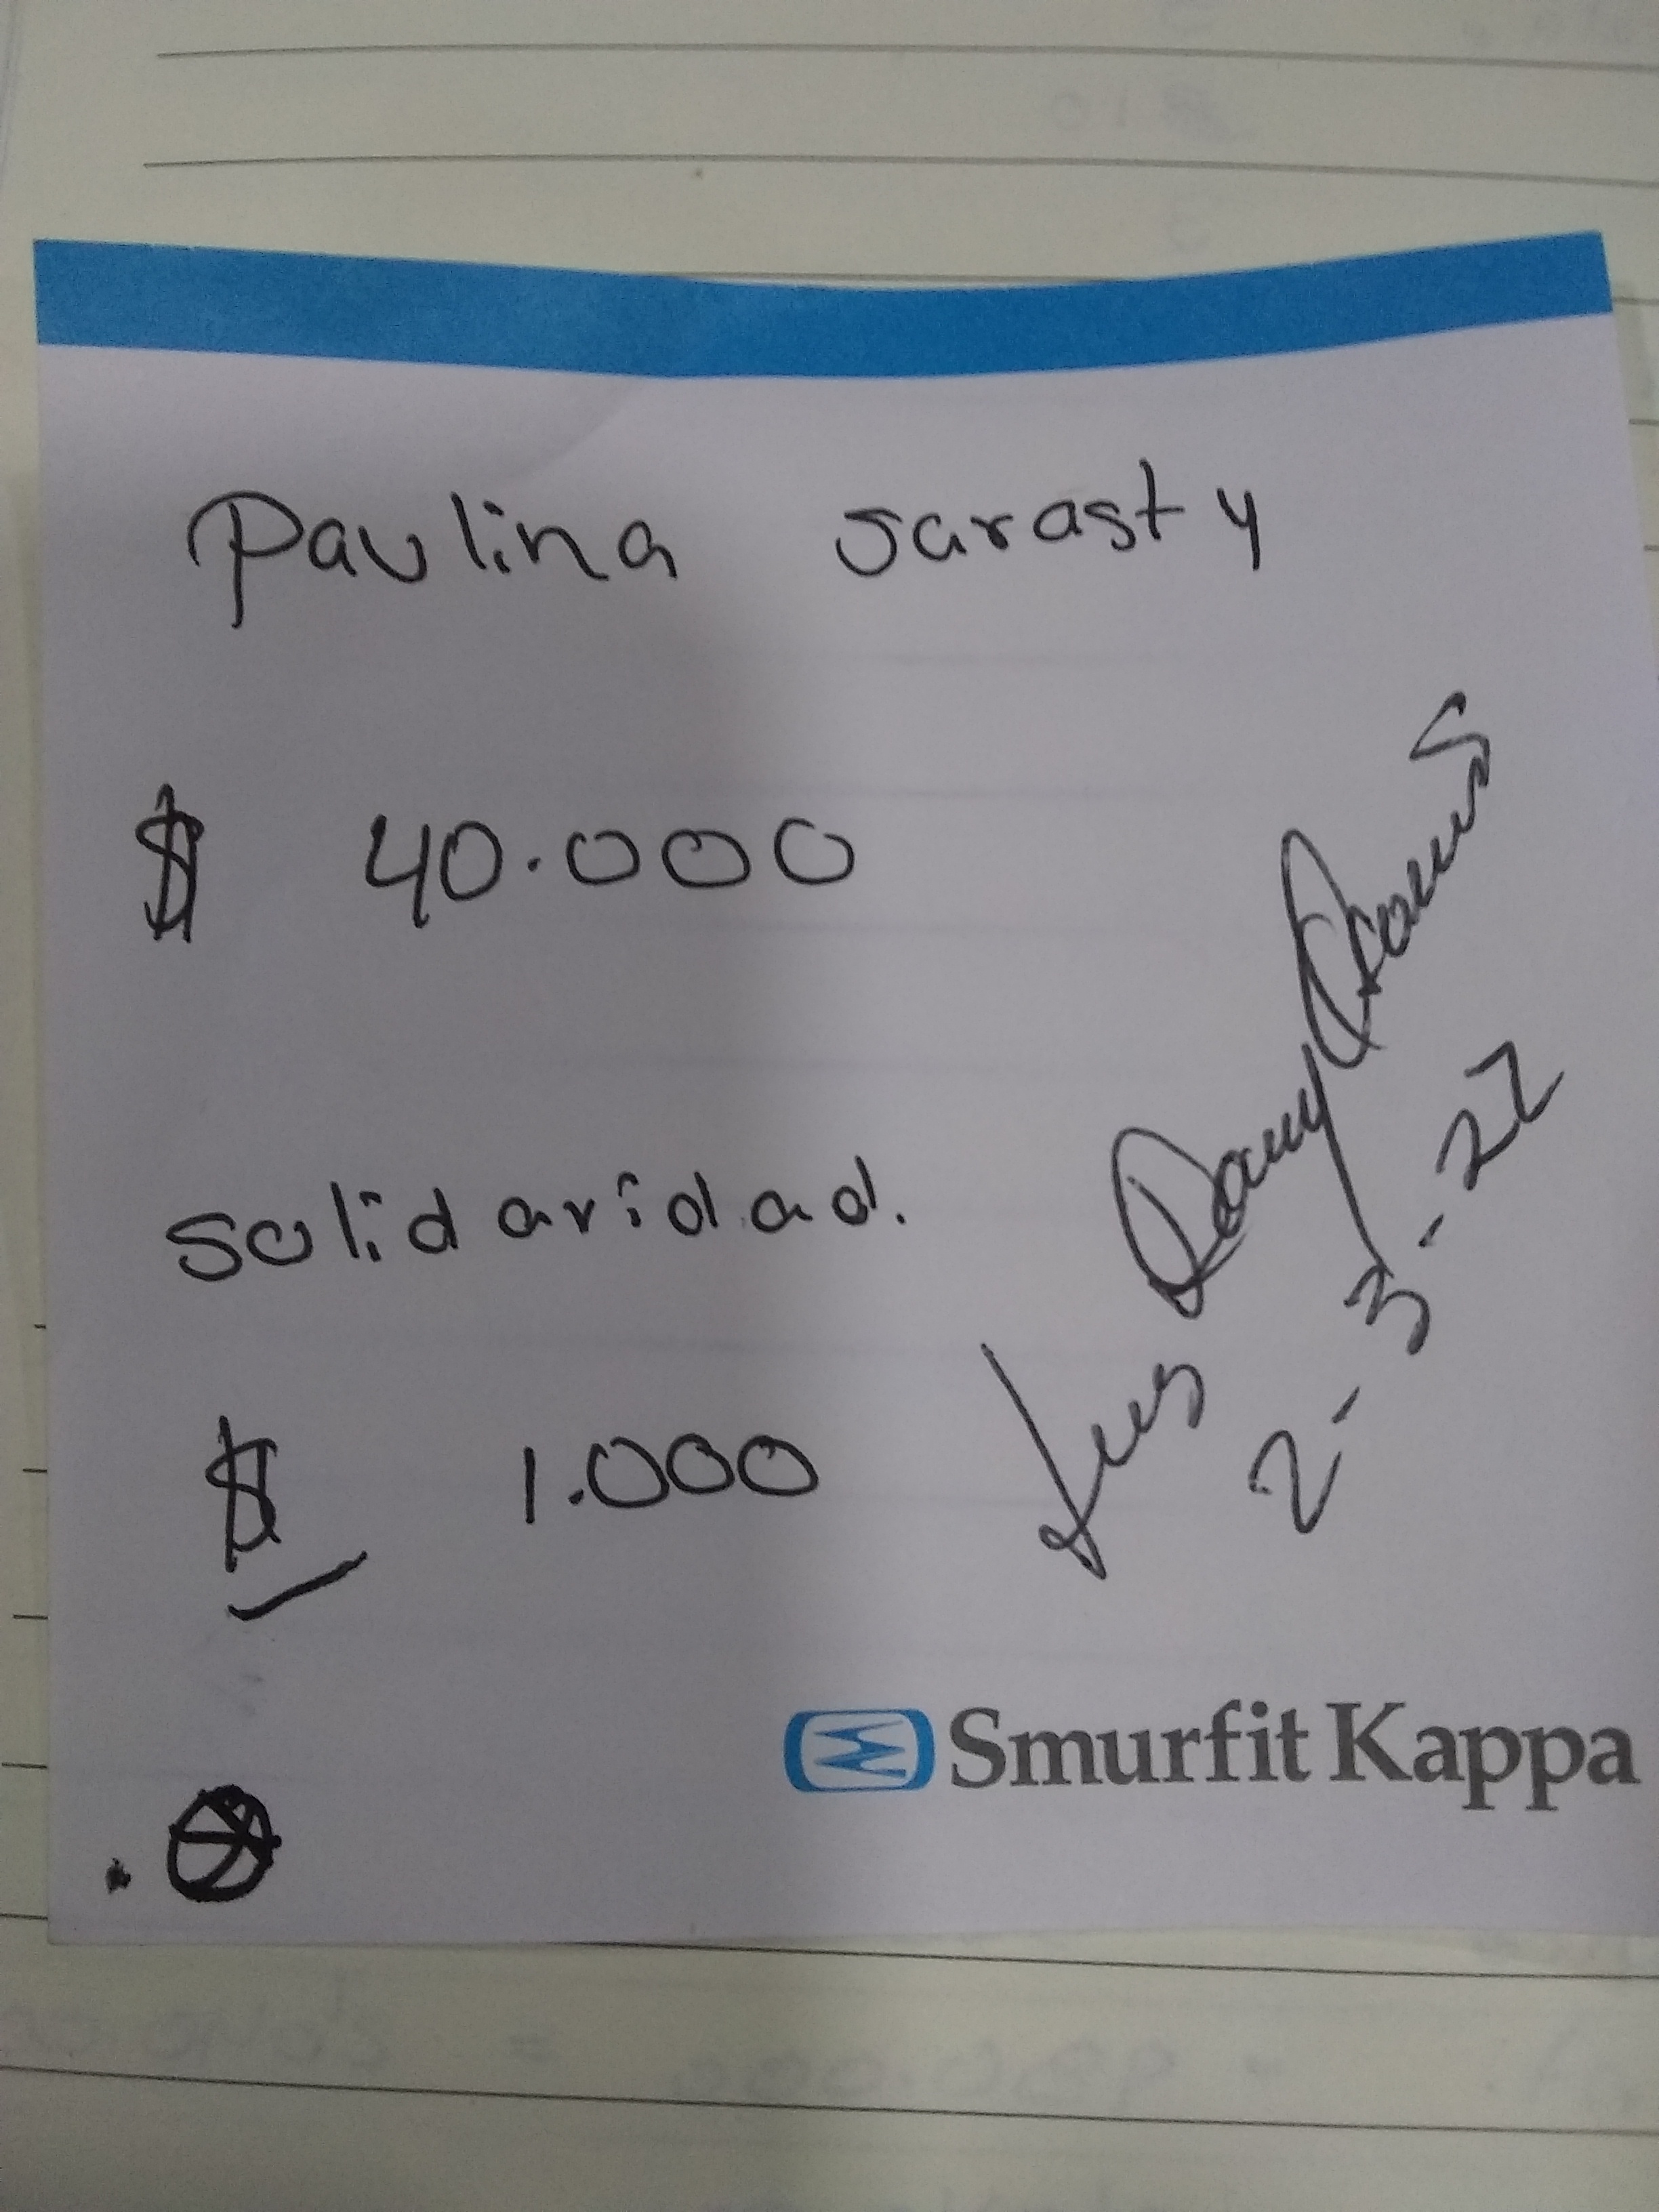 Paulina Sarasty
$ 40.000
Solidaridad.
$ 1.000
Luz Dary
2-3-22
Smurfit Kappa